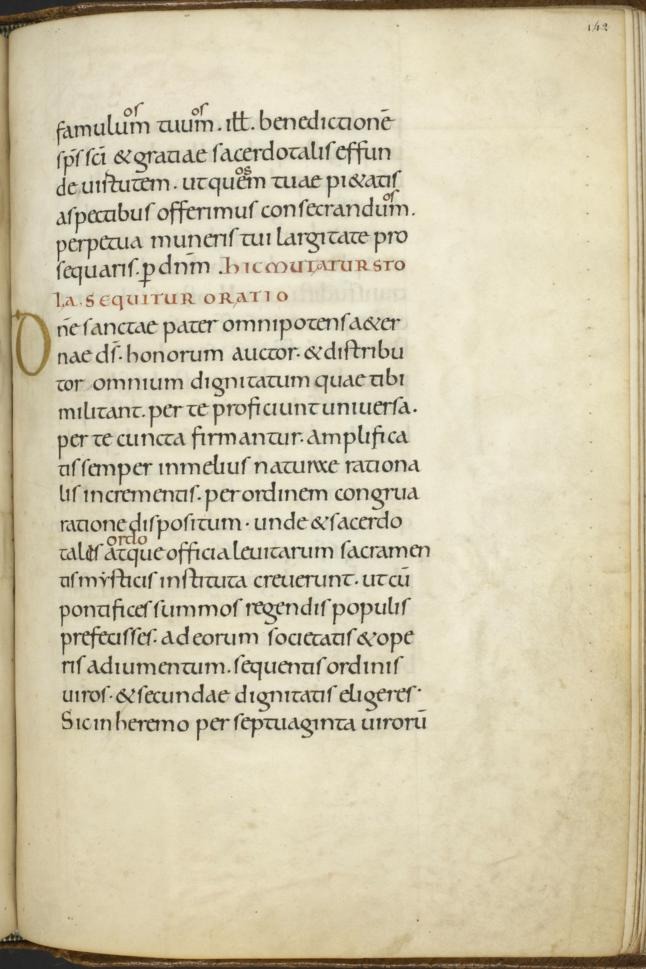 142
famulu᷒m tuu᷒m. ill. benedictionē
sp̄s sc̄i & gratiae sacerdotalis effun
de uirtutem. ut quem tuae pi&atis
aspectibus offerimus consecrandum.
perpetua muneris tui largitate pro
sequaris. p dn̄m. hic mutatur sto
la. sequitur oratio
Dn̄e sanctae pater omnipotens a&er
nae ds̄. honorum auctor. & distribu
tor omnium dignitatum quae tibi
militant. per te proficiunt uniuersa.
per te cuncta firmantur. amplifica
tis semper inmelius naturae rationa
lis incrementis. per ordinem congrua
ratione dispositum. unde & sacerdo
ordo
tales atque officia leuitarum sacramen
tis mysticis instituta creuerunt. ut cū
pontifices summos regendis populis
prefecisses. ad eorum societatis & ope
ris adiumentum. sequentis ordinis
uiros. & secundae dignitatis eligeres.
Sic in heremo per septuaginta uirorū